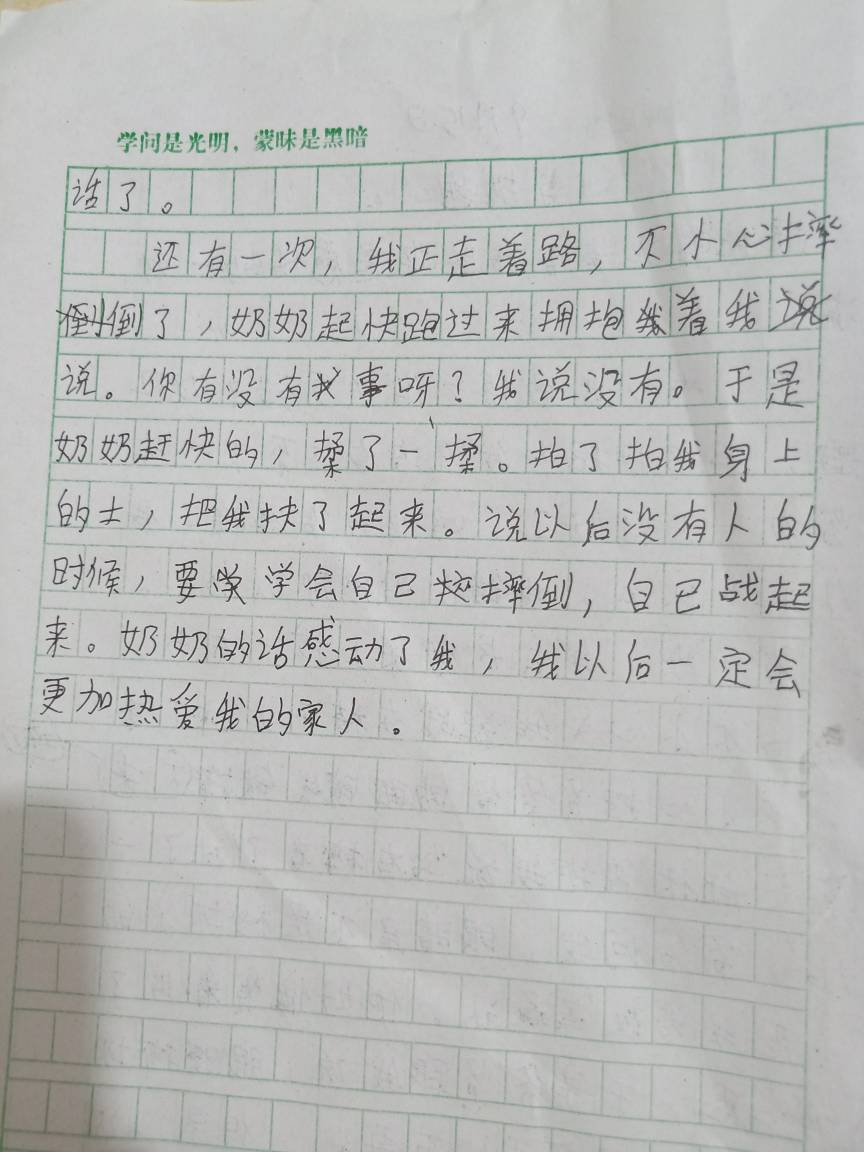 学问是光明，蒙昧是黑暗
话了。
还有一次，我正走着路，不小心摔
倒了，奶奶起快跑过来拥抱着我
说。你有没有事呀？我说没有。于是
奶奶赶快的，揉了一揉。拍了拍我身上
的土，把我扶了起来。说以后没有人的
时候，要学会自己摔倒，自己战起
来。奶奶的话感动了我，我以后一定会
更加热爱我的家人。